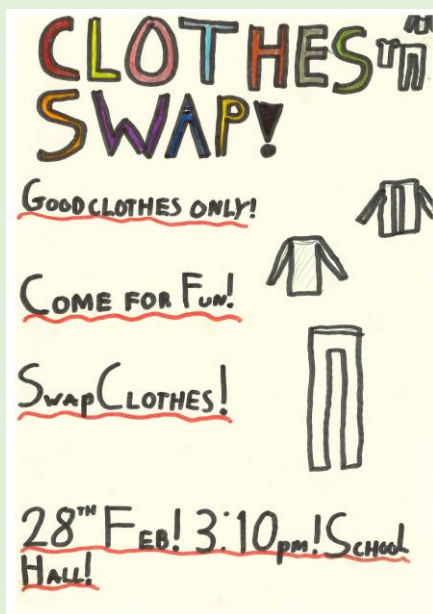 CLOTHES
SWAP!
GOOD CLOTHES ONLY!
COME FOR FUN!
SWAP CLOTHES!
28TH FEB! 3:10pm! SCHOOL
HALL!